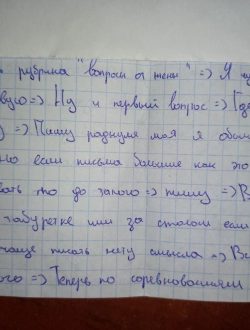 рубрика "вопросы от жены" => Я
=> Ну и первый вопрос => Где
=> Пишу родную моя я обыч
но если письма большие как это
вать то до залого => пишу => В
табуретке или за столом если
чаще писать нету смысла => Вс
ого => Теперь по соревнованиям